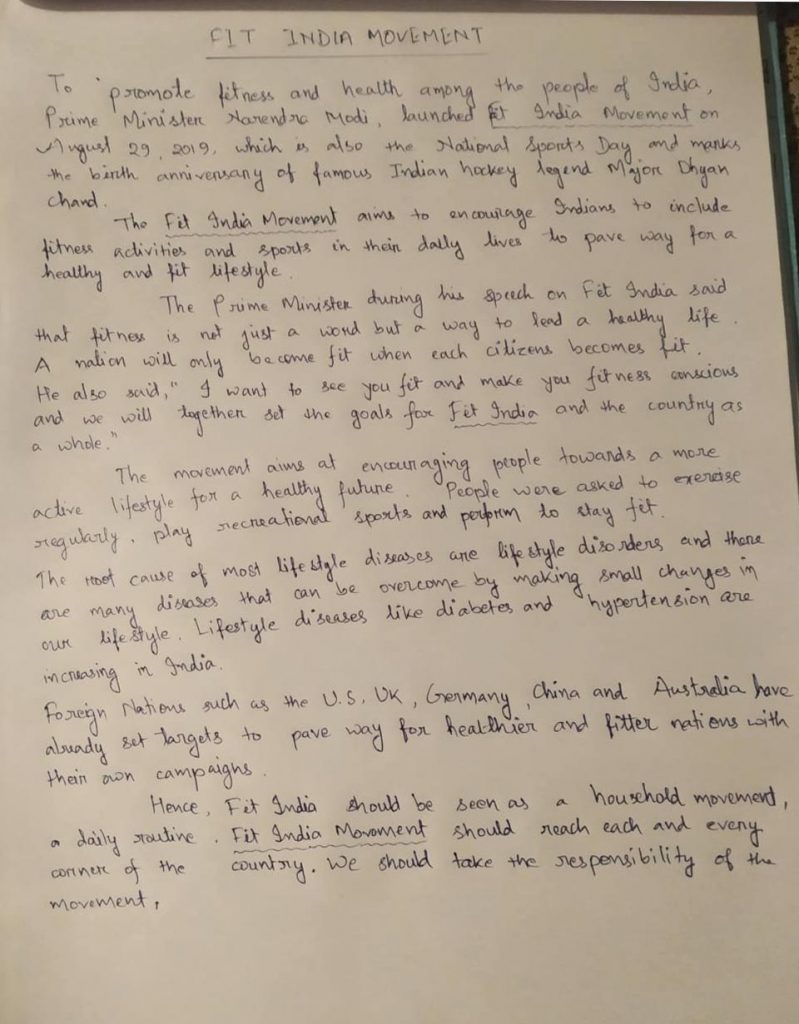 FIT INDIA MOVEMENT
To promote fitness and health among the people of India,
Prime Minister Narendra Modi, launched Fit India Movement on
August 29, 2019, which is also the National Sports Day and marks
the birth anniversary of famous Indian hockey legend Major Dhyan
Chand.
The Fit India Movement aims to encourage Indians to include
fitness activities and sports in their daily lives to pave way for a
healthy and fit lifestyle.
The Prime Minister during his speech on Fit India said
that fitness is not just a word but a way to lead a healthy life.
A nation will only become fit when each citizens becomes fit.
He also said," I want to see you fit and make you fitness conscious
and we will together set the goals for Fit India and the country as
a whole."
The movement aims at encouraging people towards a more
active lifestyle for a healthy future. People were asked to exercise
regularly, play recreational sports and perform to stay fit.
The root cause of most lifestyle diseases are lifestyle disorders and there
are many diseases that can be overcome by making small changes in
our lifestyle. Lifestyle diseases like diabetes and hypertension are
increasing in India.
Foreign Nations such as the U.S, UK, Germany, China and Australia have
already set targets to pave way for healthier and fitter nations with
their own campaigns.
Hence, Fit India should be seen as a household movement,
a daily routine. Fit India Movoment should reach each and every
corner of the country. We should take the responsibility of the
movement,